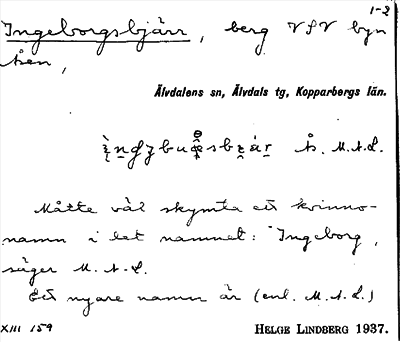 1-2
Ingeborgsbjärr, berg VSV byn
Åsen,
Älvdalens sn, Älvdals tg, Kopparbergs län.
Ås. M.A.L.
Måtte väl skymta ett kvinno-
namn i det namnet: Ingeborg,
säger M.A.L.
Ett nyare namn är (enl. M.A.L.)
XIII 159
HELGE LINDBERG 1937.